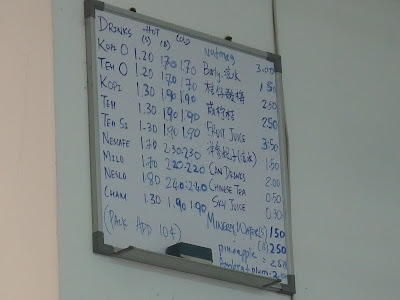 DRINKS HOT COLD
(S) (B)
KOPI O 1.20 1.70 1.70
TEH O 1.20 1.70 1.70
KOPI 1.30 1.90 1.90
TEH 1.30 1.90 1.90
TEH Si 1.30 1.90 1.90
NESCAFE 1.70 2.30 2.30
MILO 1.70 2.20 2.20
NESLO 1.80 2.40 2.40
CHAM 1.30 1.90 1.90
(PACK ADD 10¢)
Nutmeg 3.00
Barly 1.50
桔仔酸梅 2.50
2.50
FRUIT JUICE 3.50
1.50
CAN DRINKS 2.00
CHINESE TEA 0.50
SKY JUICE 0.30
MINERAL WATER(S) 1.50
(B) 2.50
pineapple =